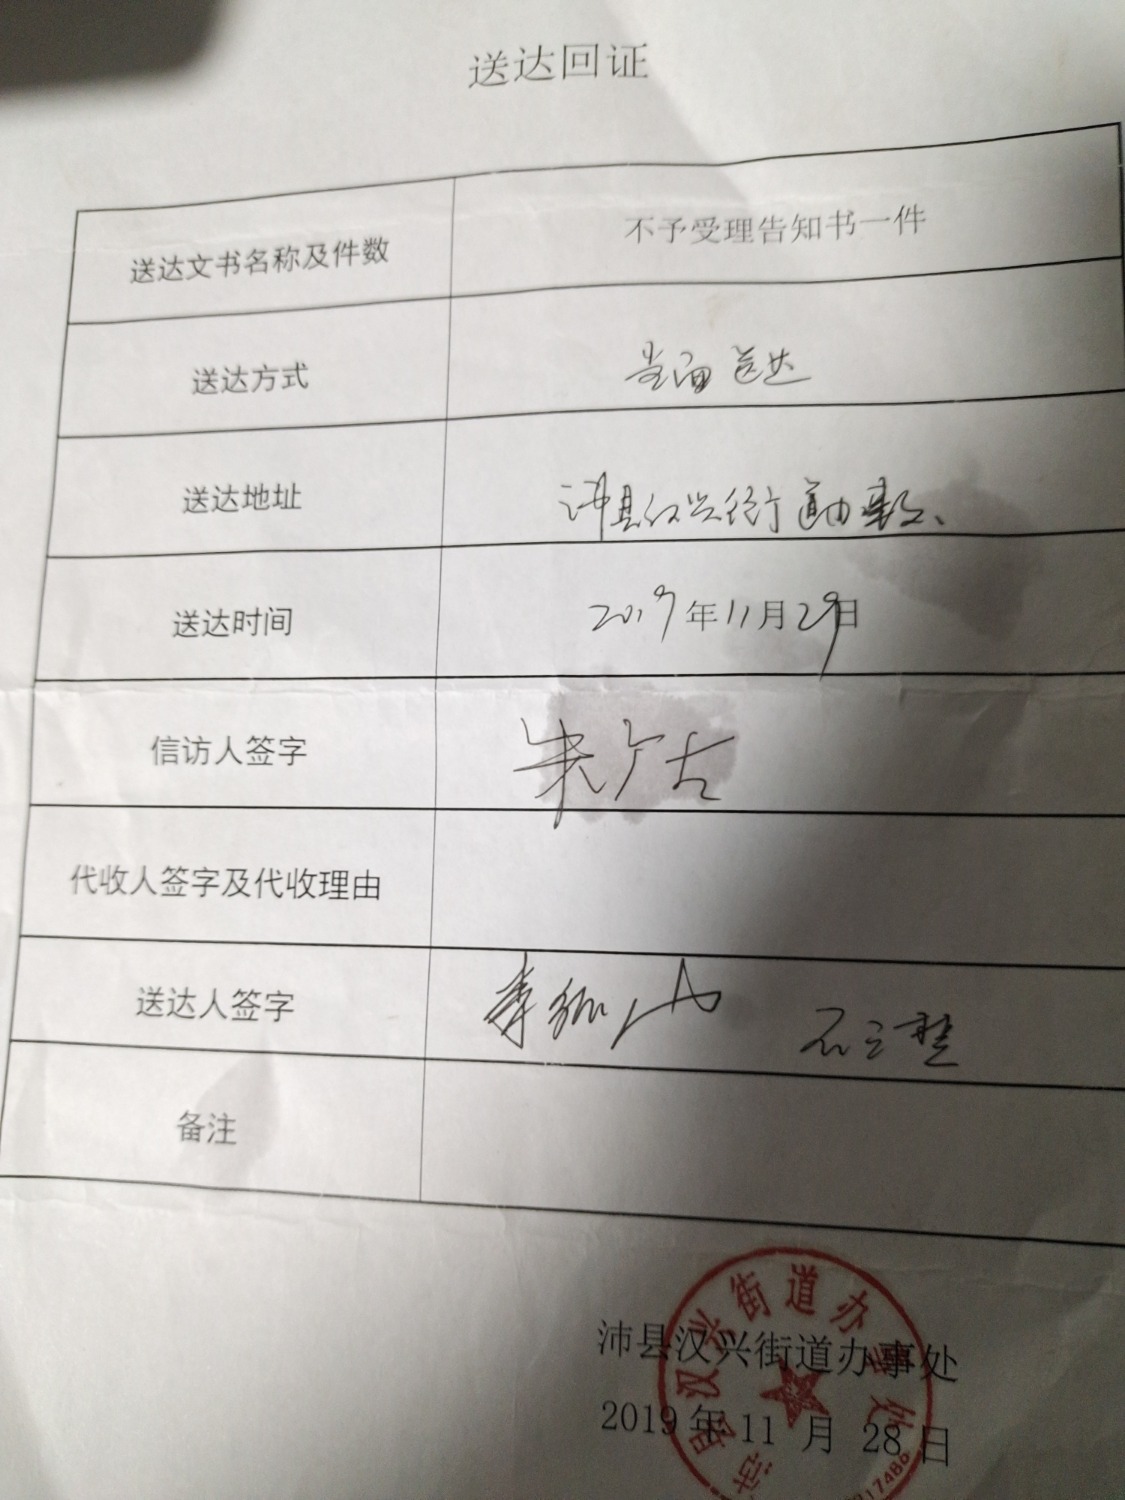 送达回证
送达文书名称及件数
不予受理告知书一件
送达方式
当面送达
送达地址
沛县汉兴街道办事处
送达时间
2019年11月29日
信访人签字
朱广古
代收人签字及代收理由
送达人签字
备注
沛县汉兴街道办事处
2019年11月28日
沛县汉兴街道办事处